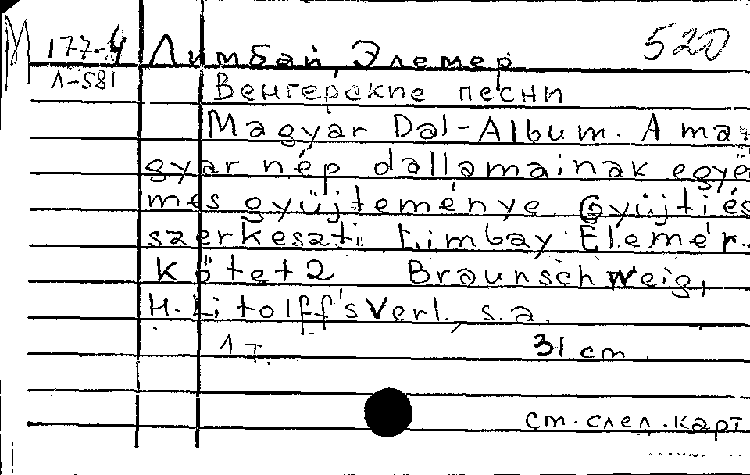 М 177-4 Лимбай, Элемер 520
Л-581
Венгерские песни
Magyar Dal-Album. A ma-
gyar nép dallamainak egye
mes gyüjteménye. Gyüjti és
szerkeszti Limbay Elemér.
Kötet 2 Braunschweig,
H. Litolff's Verl., s.a.
1 т. 31 cm
см. след. карт